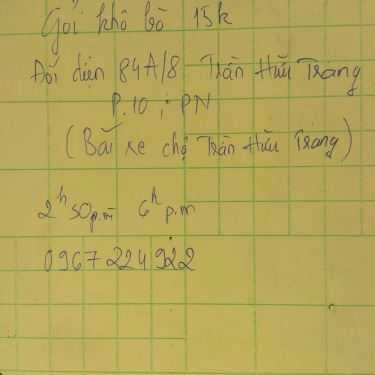 Gỏi khô bò 15k
Đối diện 84A/8 Trần Hữu Trang
P.10 ; PN
(Bãi xe chợ Trần Hữu Trang)
2h50p.m 6h p.m
0967 224 922